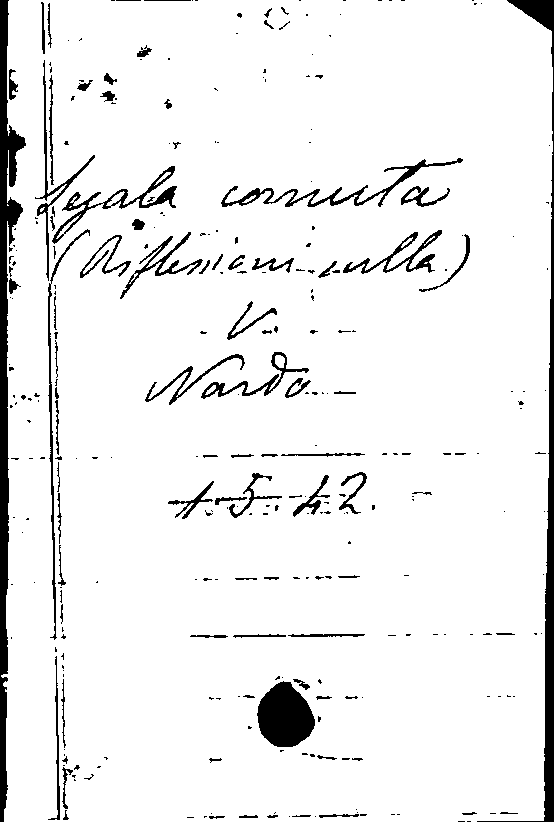 Segala cornuta
(Riflessioni sulla)
V.
Nardo
1. 5. 42.